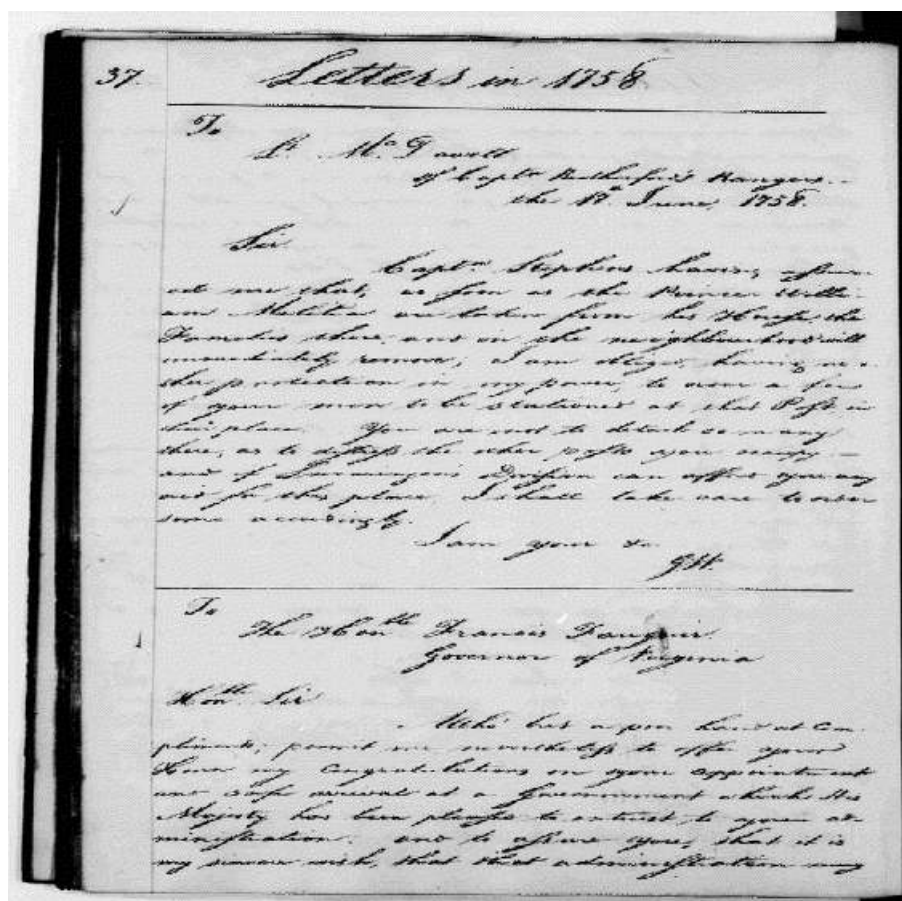 37. Letters in 1758
To
Lt. McDowell
of Captn Rutherford's Rangers.
the 17th June, 1758.
Sir
Captn. Stephens having assur-
ed me that, as soon as the Prince Willi-
am Militia are taken from his House, the
Families there, and in the neighbourhood will
immediately remove; I am obliged, having no o-
ther protection in my power, to order a few
of your men to be stationed at that Post in
their place. You are not to detach so many
there, as to distress the other posts you occupy –
and if Division can afford you any
aid for this place, I shall take care to order
some accordingly.
I am your &c.
G.W.
To
The Honble. Francis Fauquier
Governor of Virginia
Honble. Sir
Altho' but a poor hand at Com-
pliments, permit me nevertheless to offer your
Honor my congratulations on your appointment
and safe arrival at a Government which His
Majesty has been pleased to entrust to your ad-
ministration: and to assure you, that it is
my sincere wish, that that administration may